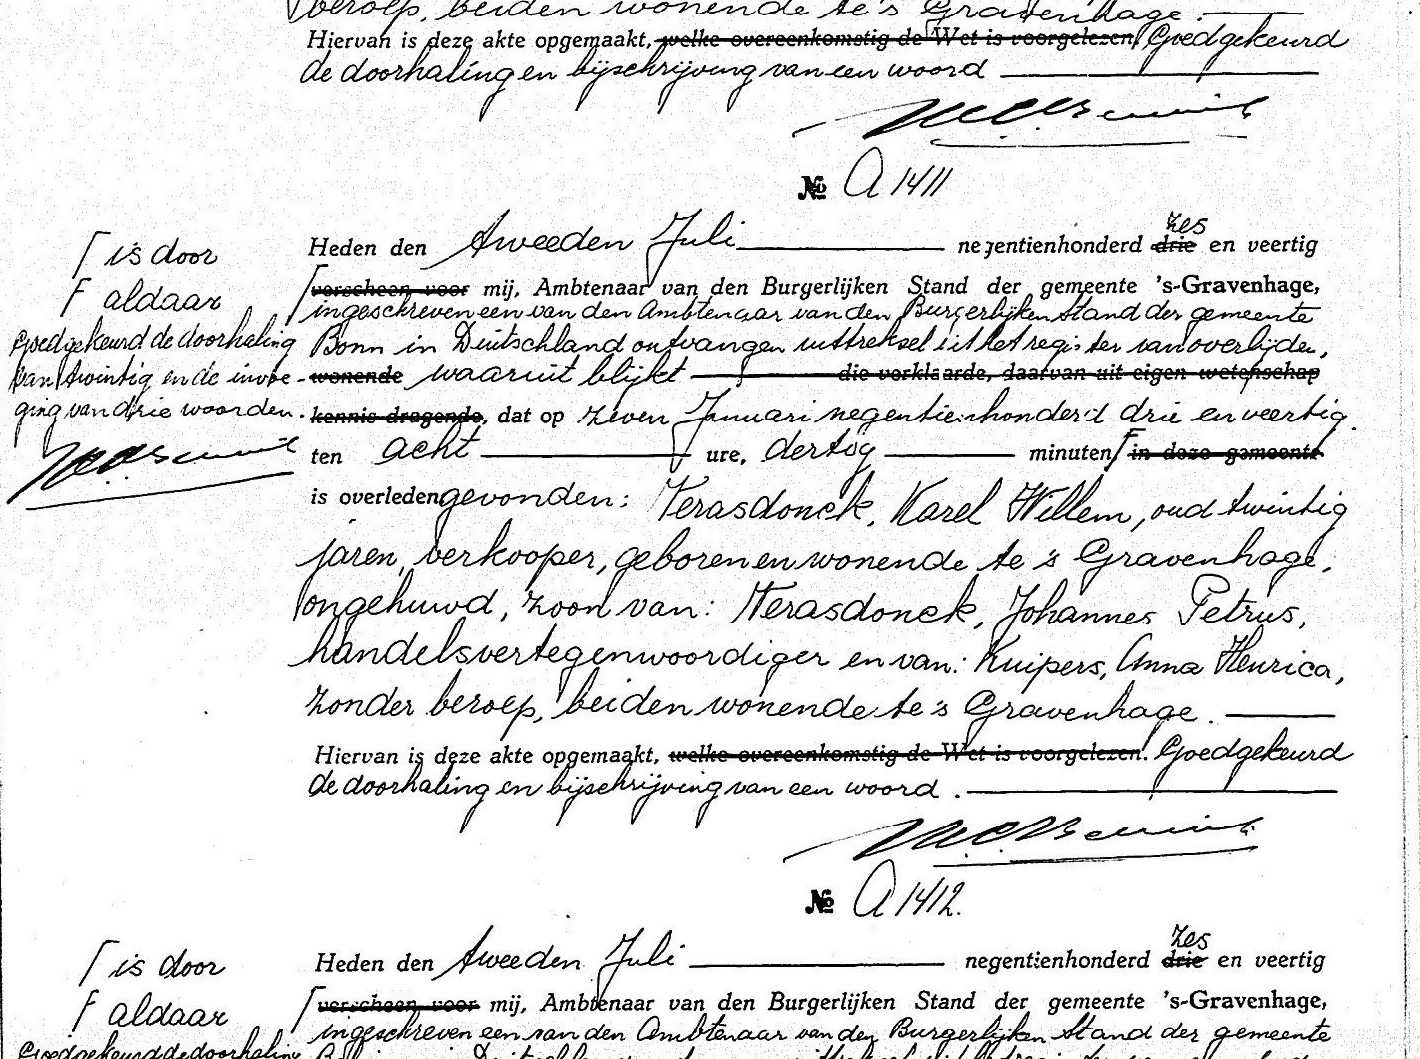 beroep, beiden wonende te 's Gravenhage.
Hiervan is deze akte opgemaakt, welke overeenkomstig de Wet is voorgelezen. Goedgekeurd
de doorhaling en bijschrijving van een woord
No A 1411
zes
Heden den tweeden Juli negentienhonderd drie en veertig
⌈ is door
⌈ verscheen voor mij, Ambtenaar van den Burgerlijken Stand der gemeente 's-Gravenhage,
F aldaar
ingeschreven een van den Ambtenaar van den Burgerlijken Stand der gemeente
Goedgekeurd de doorhaling
Bonn in Duitschland ontvangen uittreksel uit het register van overlijden,
van twintig en de invoe-
wonende waaruit blijkt die verklaarde, daarvan uit eigen wetenschap
ging van drie woorden.
kennis dragende, dat op zeven Januari negentienhonderd drie en veertig
ten acht ure, dertig minuten F in deze gemeente
is overleden gevonden: Verasdonck, Karel Willem, oud twintig
jaren, verkooper, geboren en wonende te 's Gravenhage,
ongehuwd, zoon van: Verasdonck, Johannes Petrus,
handelsvertegenwoordiger en van: Kuipers, Anna Henrica,
zonder beroep, beiden wonende te 's Gravenhage.
Hiervan is deze akte opgemaakt, welke overeenkomstig de Wet is voorgelezen. Goedgekeurd
de doorhaling en bijschrijving van een woord.
No A 1412.
zes
Heden den tweeden Juli negentienhonderd drie en veertig
⌈ is door
⌈ verscheen voor mij, Ambtenaar van den Burgerlijken Stand der gemeente 's-Gravenhage,
F aldaar
ingeschreven een van den Ambtenaar van den Burgerlijken Stand der gemeente
Goedgekeurd de doorhaling